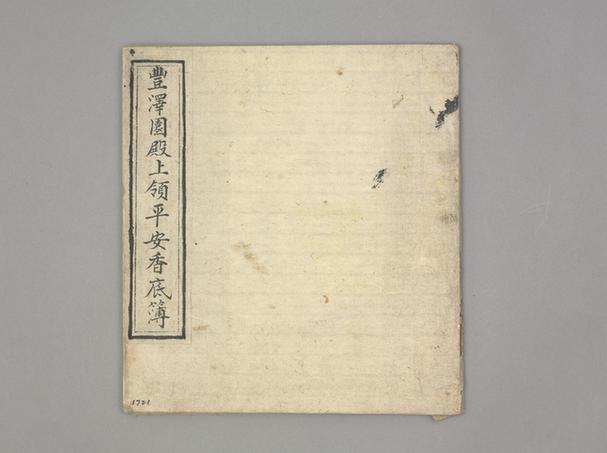 豐澤園殿上領平安香底簿
1721